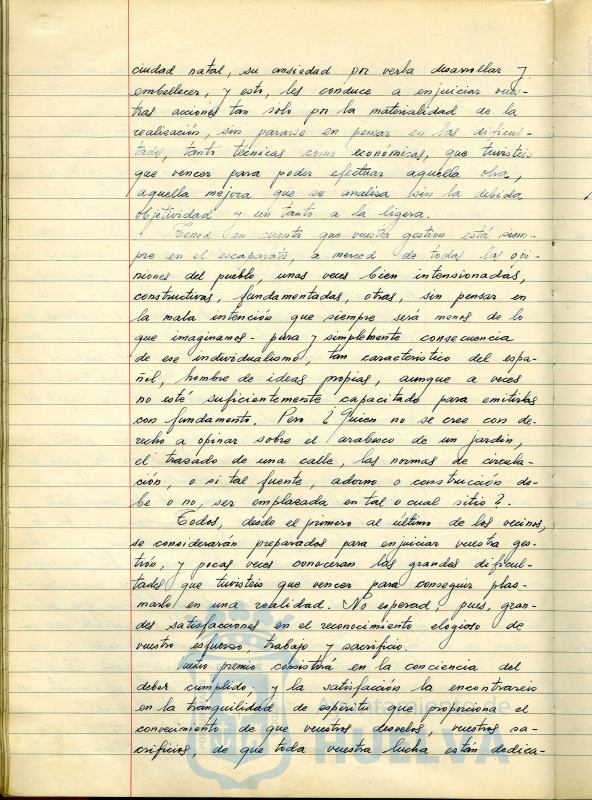 ciudad natal, su ansiedad por verla desarrollar y
embellecer, y esto, les conduce a enjuiciar vues-
tras acciones tan solo por la materialidad de la
realisación, sin pararse en pensar en las dificul-
tades, tanto técnicas como económicas, que tuvisteis
que vencer para poder efectuar aquella obra,
aquella mejora que se analisa sin la debida
objetividad y un tanto a la ligera.
Tened en cuenta que vuestra gestion está siem-
pre en el escaparate, a merced de todas las opi-
niones del pueblo, unas veces bien intensionadas,
constructivas, fundamentadas, otras, sin pensar en
la mala intención que siempre será menos de lo
que imaginamos - pura y simplemente consecuencia
de ese individualismo, tan característico del espa-
ñol, hombre de ideas propias, aunque a veces
no esté suficientemente capacitado para emitirlas
con fundamento. Pero ¿Quien no se cree con de-
recho a opinar sobre el arabesco de un jardin,
el trazado de una calle, las normas de circula-
ción, o si tal fuente, adorno o construcción de-
be o no, ser emplazada en tal o cual sitio?.
Todos, desde el primero al último de los vecinos,
se considerarán preparados para enjuiciar vuestra ges-
tión, y pocas veces conoceran las grandes dificul-
tades que tuvisteis que vencer para conseguir plas-
marlo en una realidad. No esperad, pues, gran-
des satisfacciones en el reconocimiento elogioso de
vuestro esfuerzo, trabajo y sacrificio.
uestro premio consistirá en la conciencia del
deber cumplido, y la satisfacción la encontrareis
en la tranquilidad de espíritu que proporciona el
convecimiento de que vuestros desvelos, vuestros sa-
crificios, de que toda vuestra lucha están dedica-
Ayuntamiento de
HUELVA